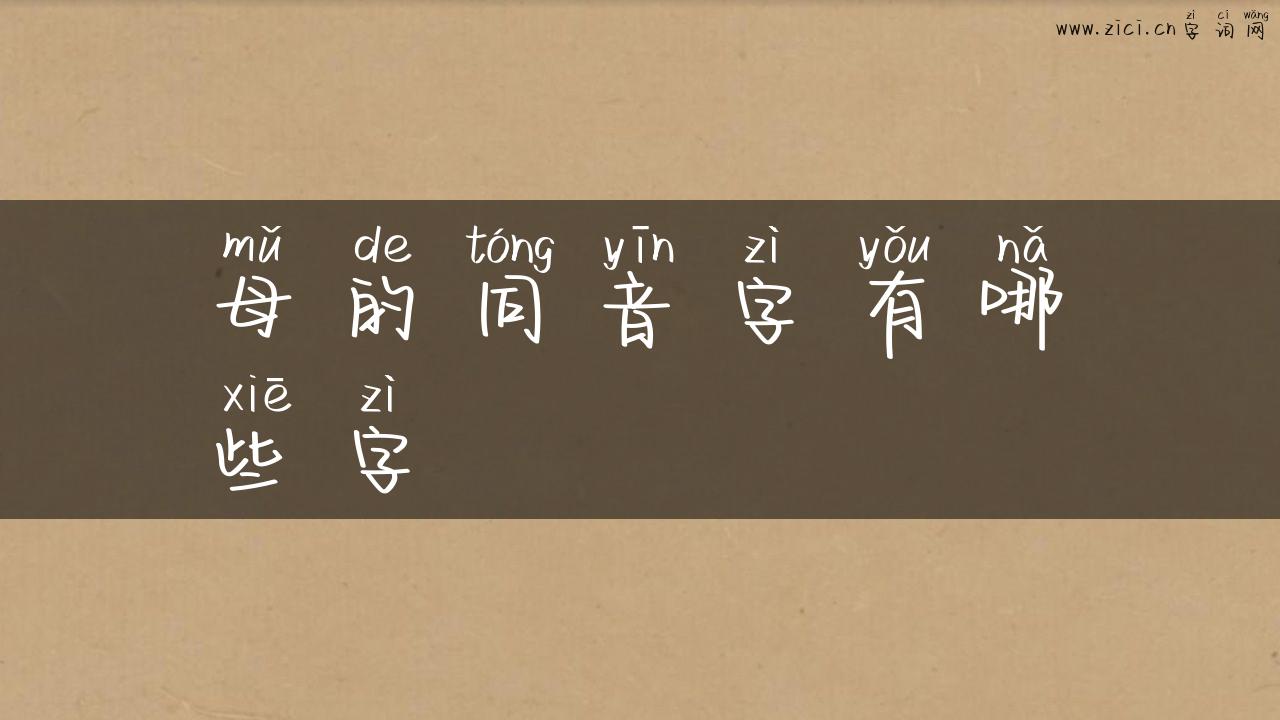 zì cí wǎng
www.zici.cn 字词网
mǔ de tóng yīn zì yǒu nǎ
母的同音字有哪
xiē zì
些字